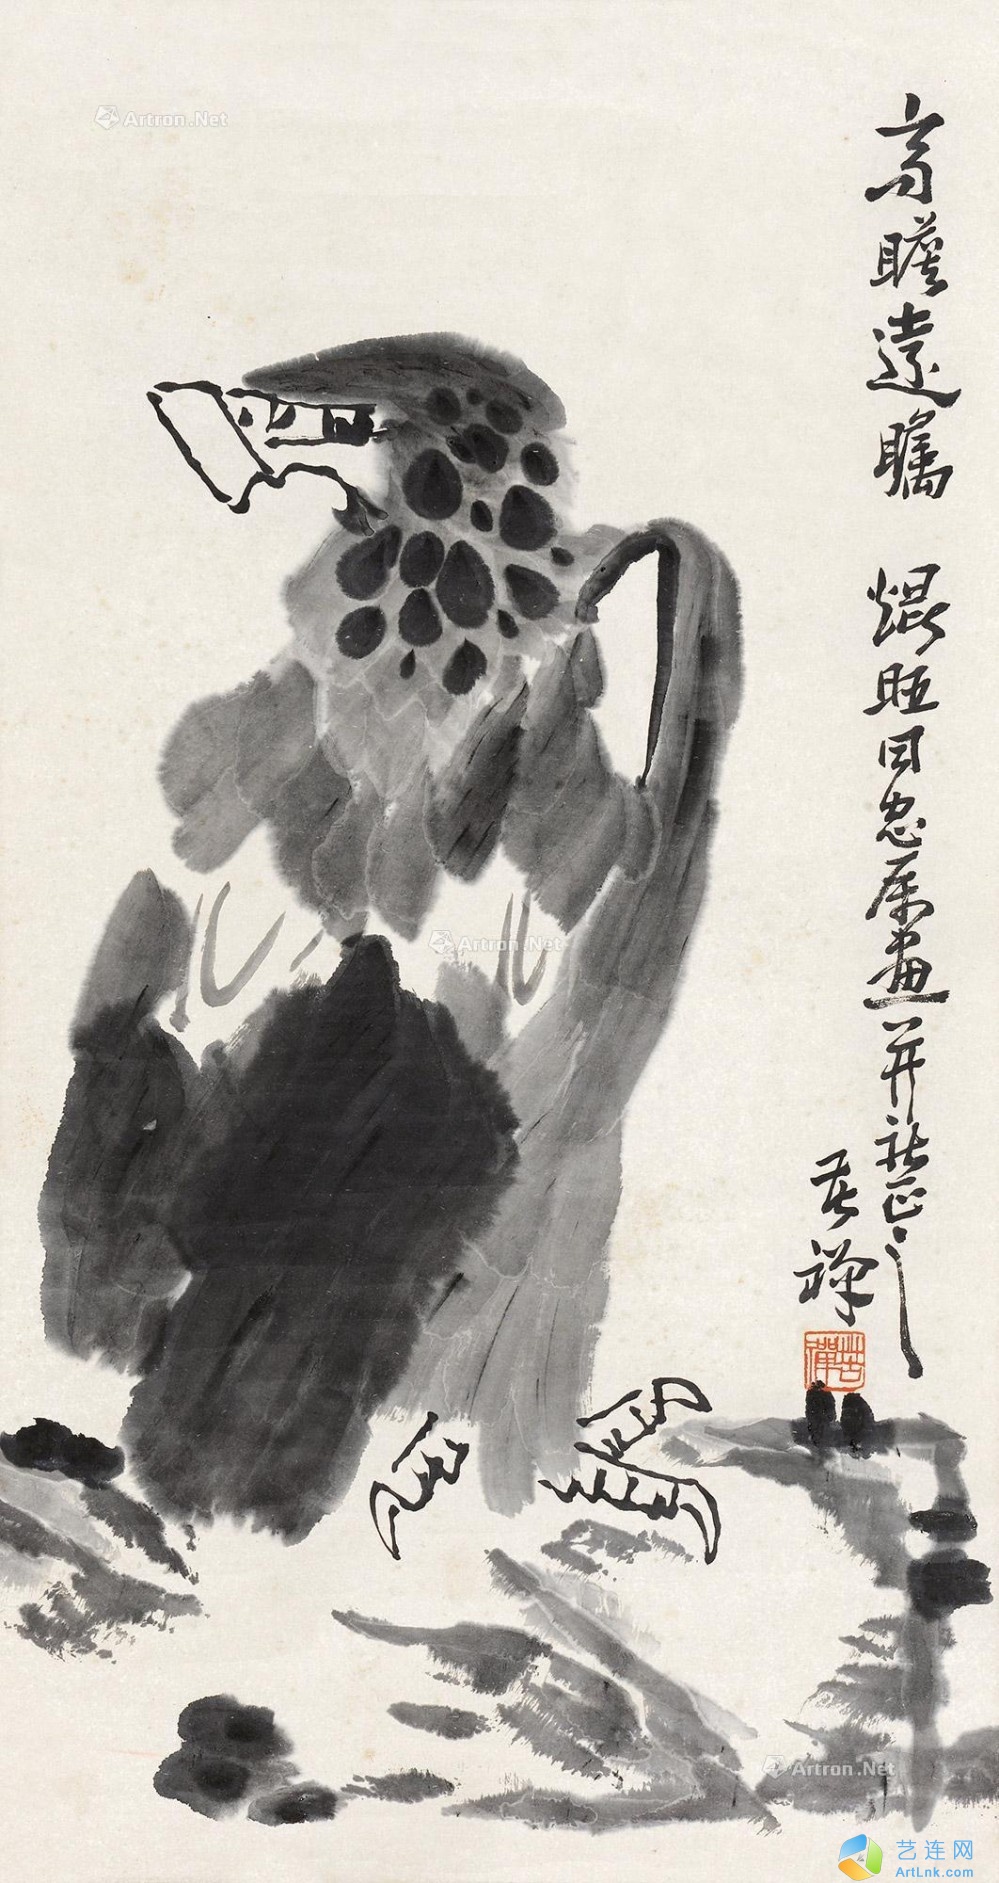 高瞻遠矚 焜旺同志屬畫並祈正之
苦禪
苦禪
Artron.Net
Artron.Net
Artron.Net
艺连网
ArtLnk.com